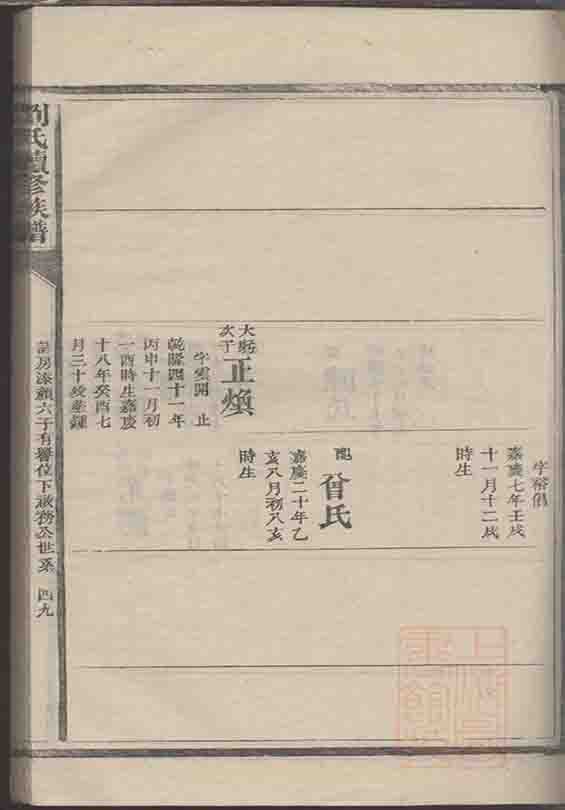 字裕倡
嘉慶七年壬戌
十一月十二戌
時生
配
曾氏
嘉慶二十年乙
亥八月初八亥
時生
大
次子
正煥
字雲開 止
乾隆四十一年
丙申十一月初
一酉時生嘉慶
十八年癸酉七
月三十
劉氏續修族譜
房添顏六子有譽位下啟務公世系 四九